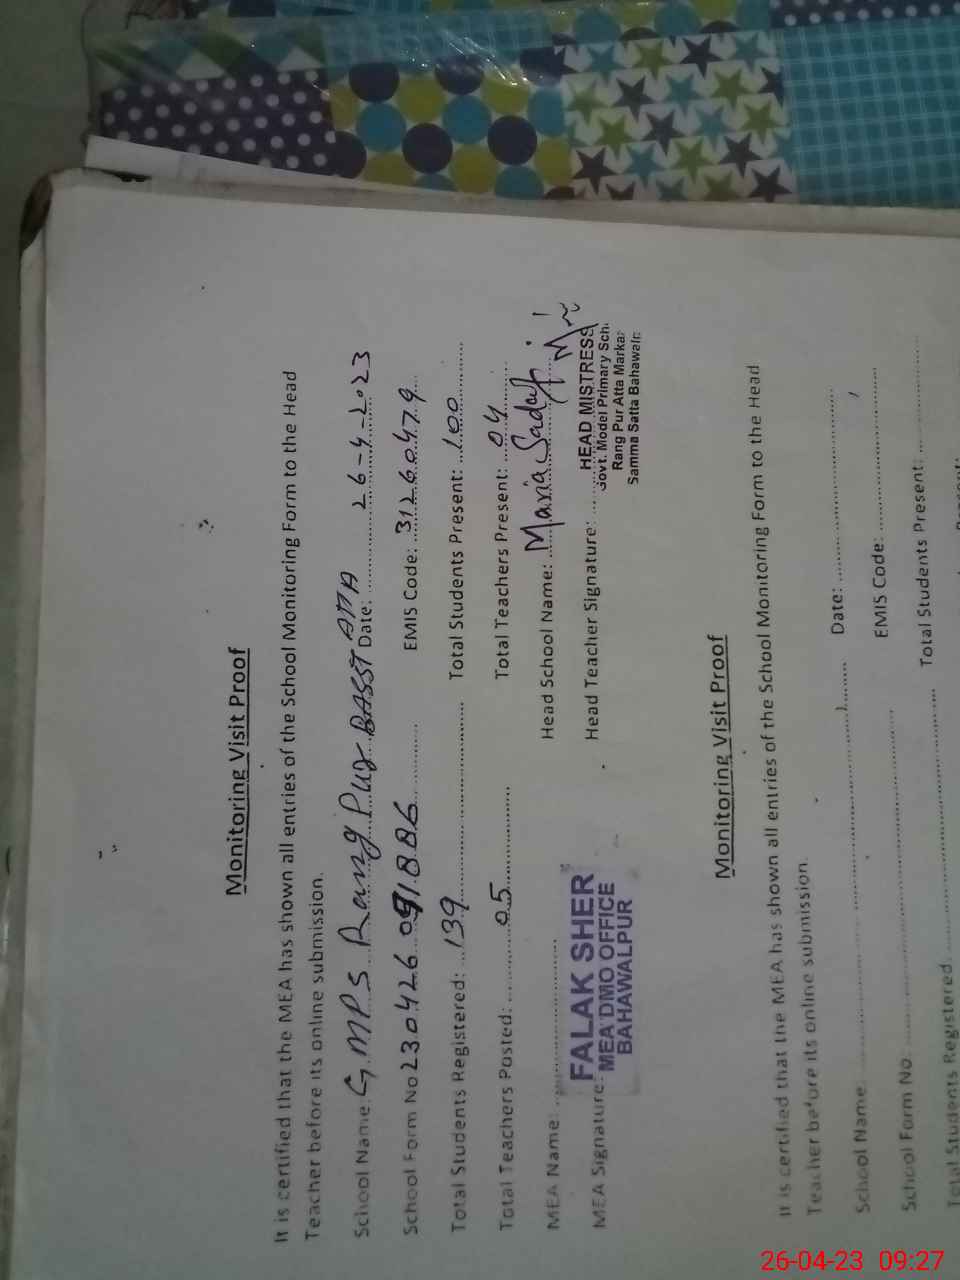 Monitoring Visit Proof
It is certified that the MEA has shown all entries of the School Monitoring Form to the Head
Teacher before its online submission.
School Name: G.MPS Rang Pur BASST ATTA Date: 26-4-2023
School Form No 230426 091886 EMIS Code: 31260479
Total Students Registered: 139 Total Students Present: 100
Total Teachers Posted: 05 Total Teachers Present: 04
MEA Name: Head School Name: Maria Sadaf
MEA Signature: Head Teacher Signature:
FALAK SHER
MEA DMO OFFICE
BAHAWALPUR
HEAD MISTRESS
Govt. Model Primary Sch.
Rang Pur Atta Markaz
Samma Satta Bahawalp
Monitoring Visit Proof
It is certified that the MEA has shown all entries of the School Monitoring Form to the Head
Teacher before its online submission.
School Name: Date:
School Form No EMIS Code:
Total Students Registered Total Students Present:
26-04-23 09:27